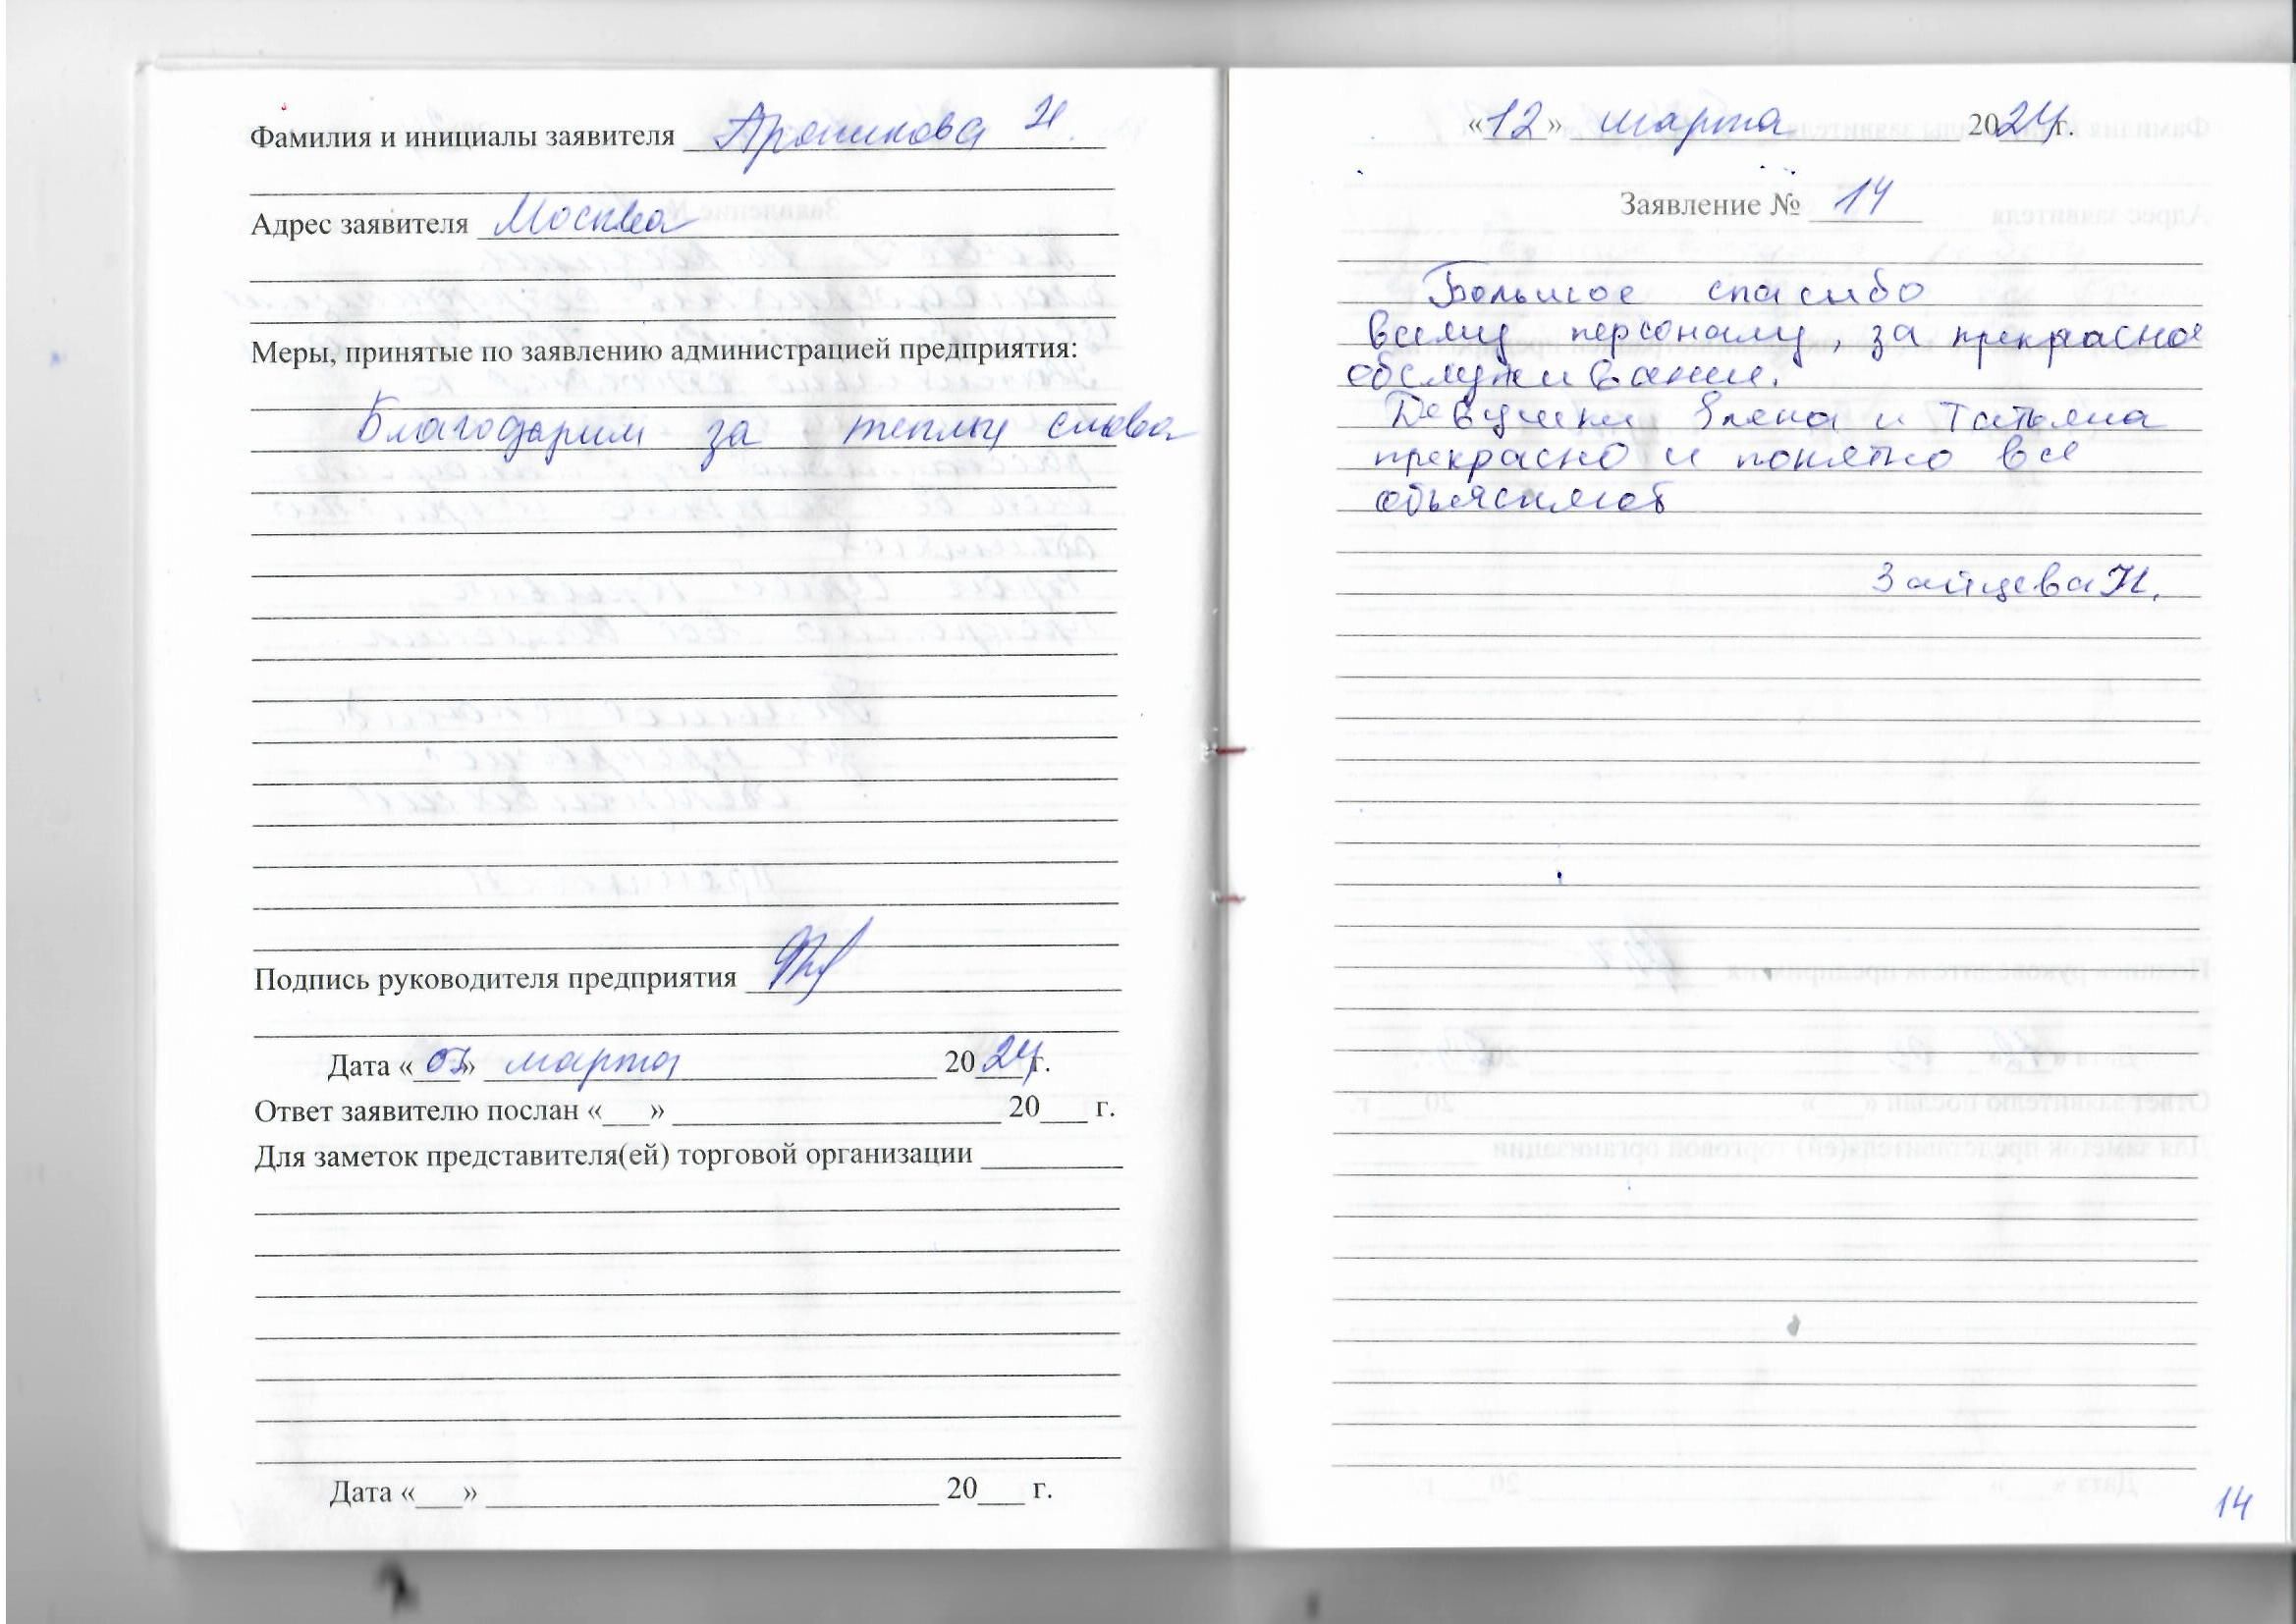 Фамилия и инициалы заявителя Н.
Адрес заявителя Москва
Меры, принятые по заявлению администрацией предприятия:
Благодарим за теплы слова
Подпись руководителя предприятия
Дата «___» марта 2024г.
Ответ заявителю послан «___» ____________ 20___ г.
Для заметок представителя(ей) торговой организации ________
Дата «___» ____________ 20___ г.
«12» марта 2024г.
Заявление № 14
Большое спасибо
всему персоналу, за прекрасное
обслуживание.
Девушки Елена и Татьяна
прекрасно и понятно все
объясняют
Зайцева Н.
14